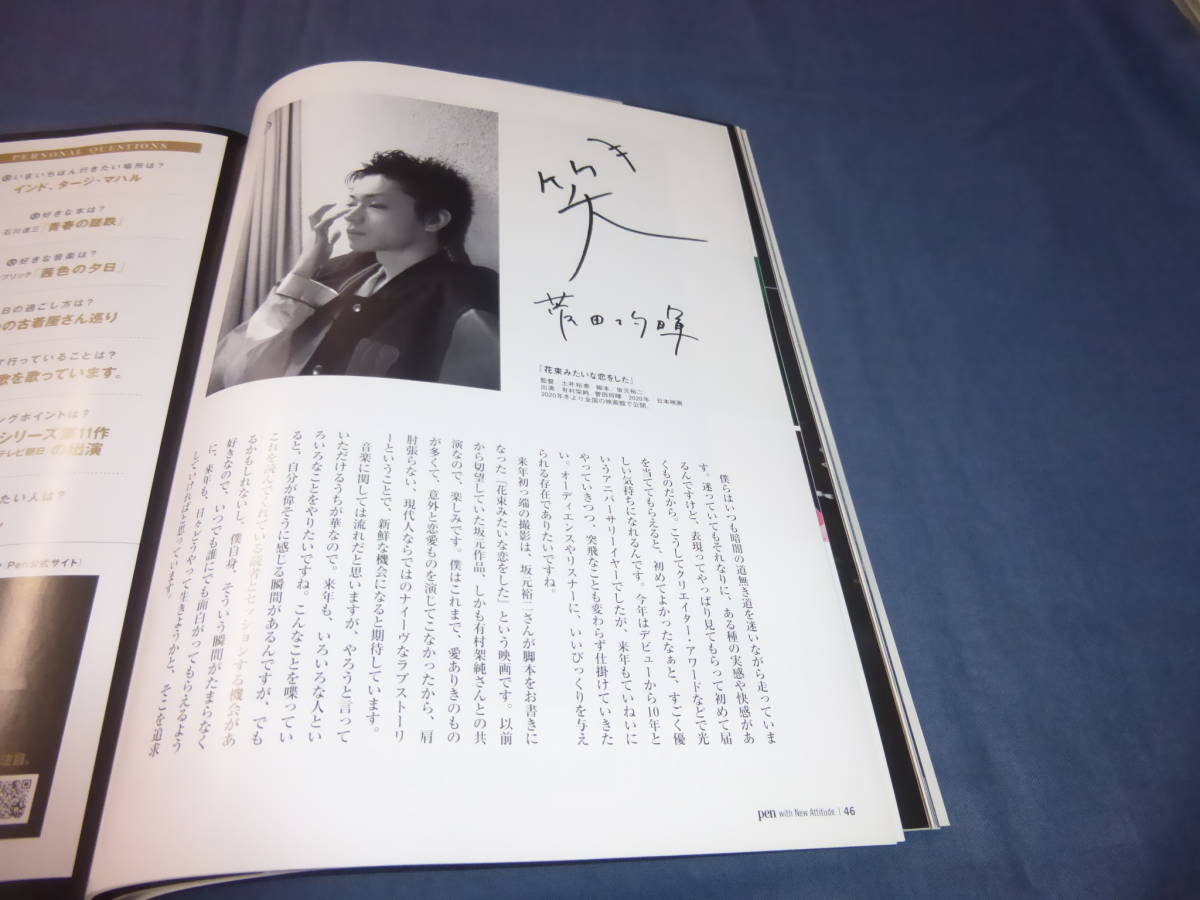 PERSONAL QUESTIONS
いまいちばん行きたい場所は?
インド、タージ・マハル
好きな本は?
石川達三「青春の蹉跌」
好きな音楽は?
ブリック「茜色の夕日」
日の過ごし方は?
の古着屋さん巡り
行っていることは?
歌を歌っています。
ングポイントは?
シリーズ第11作
テレビ朝日 の出演
たい人は?
Pen公式サイト)
注目。
笑
菅田将暉
『花束みたいな恋をした』
監督/土井裕泰 脚本/坂元裕二
出演/有村架純、菅田将暉 2020年 日本映画
2020年冬より全国の映画館で公開。
僕らはいつも暗闇の道無き道を迷いながら走っていま
す。迷っていてもそれなりに、ある種の実感や快感があ
るんですけど、表現ってやっぱり見てもらって初めて届
くものだから。こうしてクリエイター・アワードなどで光
を当ててもらえると、初めてよかったなぁと、すごく優
しい気持ちになれるんです。今年はデビューから10年と
いうアニバーサリーイヤーでしたが、来年もていねいに
やっていきつつ、突飛なことも変わらず仕掛けていきた
い。オーディエンスやリスナーに、いいびっくりを与え
られる存在でありたいですね。
来年初っ端の撮影は、坂元裕二さんが脚本をお書きに
なった『花束みたいな恋をした』という映画です。以前
から切望していた坂元作品、しかも有村架純さんとの共
演なので、楽しみです。僕はこれまで、愛ありきのもの
が多くて、意外と恋愛ものを演じてこなかったから、肩
肘張らない、現代人ならではのナイーヴなラブストーリ
ーということで、新鮮な機会になると期待しています。
音楽に関しては流れだと思いますが、やろうと言って
いただけるうちが華なので。来年も、いろいろな人とい
ろいろなことをやりたいですね。こんなことを喋ってい
ると、自分が偉そうに感じる瞬間があるんですが、でも
これを読んでくれている読者とセッションする機会があ
るかもしれないし、僕自身、そういう瞬間がたまらなく
好きなので、いつでも誰にでも面白がってもらえるよう
に、来年も、日々どうやって生きようかと、そこを追求
していければと思っています。
pen with New Attitude | 46